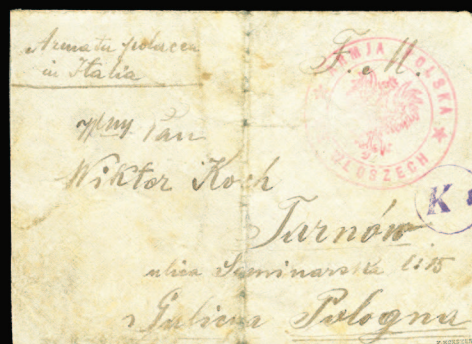 Armata polacca
in Italia
F. e M.
ARMJA POLSKA
WŁOSZECH
K
Pan
Wiktor Koch
Tarnów
ulica Seminarska L:15
Galicia Pologna